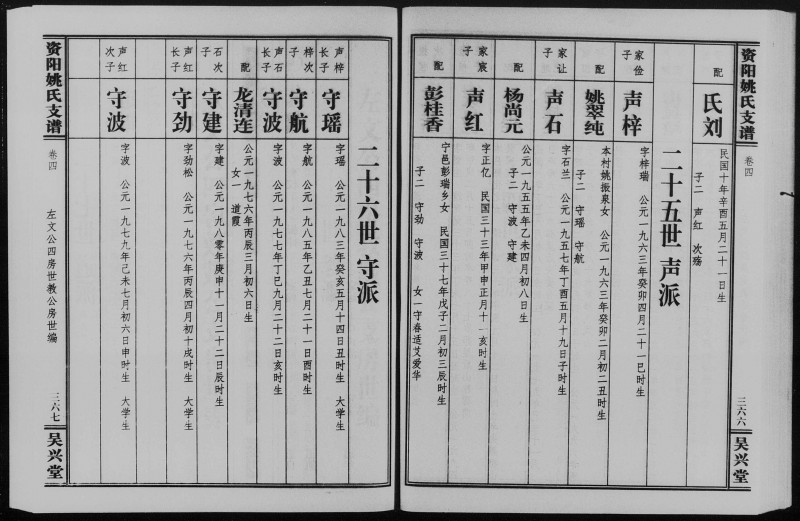 资阳姚氏支谱
卷四
三六六
吴兴堂
配
氏刘
民国十年辛酉五月二十一日生
子二 声红 次瑞
二十五世 声派
家俭
子
声梓
字梓瑞 公元一九六三年癸卯四月二十一巳时生
配
姚翠纯
本村姚振泉女 公元一九六三年癸卯二月初二丑时生
子二 守瑶 守航
家让
子
声石
字石兰 公元一九五七年丁酉五月十九日子时生
配
杨尚元
公元一九五五年乙未四月初八日生
子二 守波 守建
家宸
子
声红
字正亿 民国三十三年甲申正月十一亥时生
配
彭桂香
宁邑彭瑞乡女 民国三十七年戊子二月初三辰时生
子二 守劲 守波 女一守春适艾爱华
二十六世 守派
声梓
长子
守瑶
字瑶 公元一九八三年癸亥五月十四日丑时生 大学生
梓次
子
守航
字航 公元一九八五年乙丑七月二十一日酉时生
声石
长子
守波
字波 公元一九七七年丁巳九月二十二日亥时生
配
龙清连
公元一九七六年丙辰三月初六日生
女一 道霞
石次
子
守建
字建 公元一九八零年庚申十一月二十二日辰时生
声红
长子
守劲
字劲松 公元一九七六年丙辰四月初十戌时生 大学生
声红
次子
守波
字波 公元一九七九年己未七月初六日申时生 大学生
资阳姚氏支谱
卷四
左文公四房世教公房世编
三六七
吴兴堂